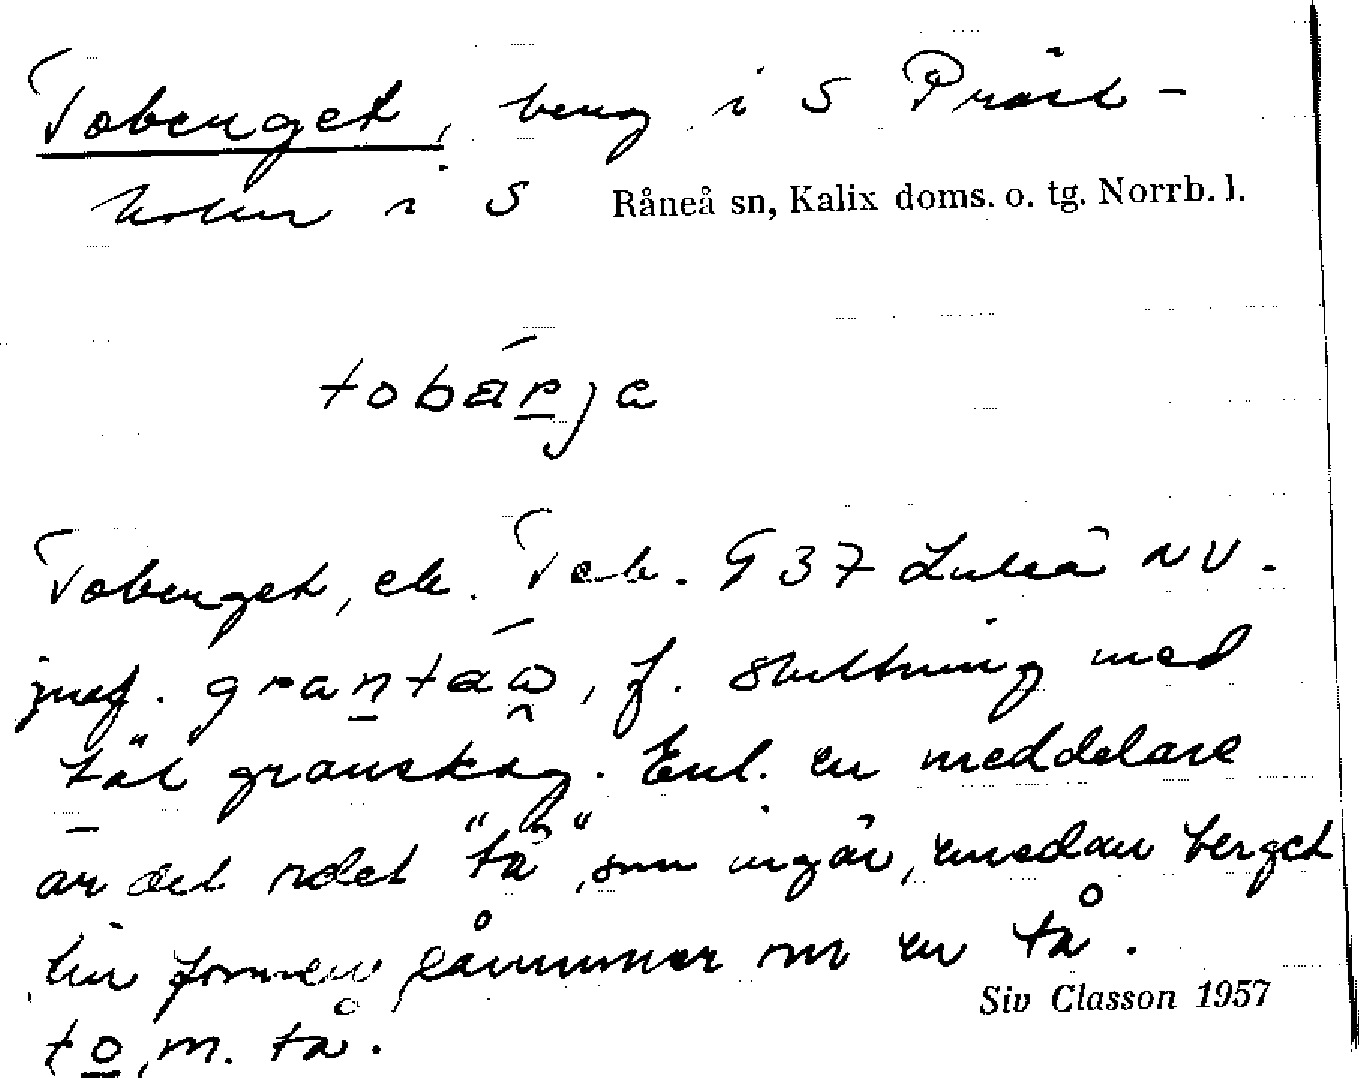 Toberget, berg i S Präst-
holm i S Råneå sn, Kalix doms. o. tg. Norrb. l.
tobárja
Toberget, ek. T-eb. 937 Luleå NV.
jmf. grantáω, f. sluttning med
tät granskog. Enl. en meddelare
är det ordet "tå", som ingår, emedan berget
till formen påminner om en tå.
to, m. tå.
Siv Classon 1957